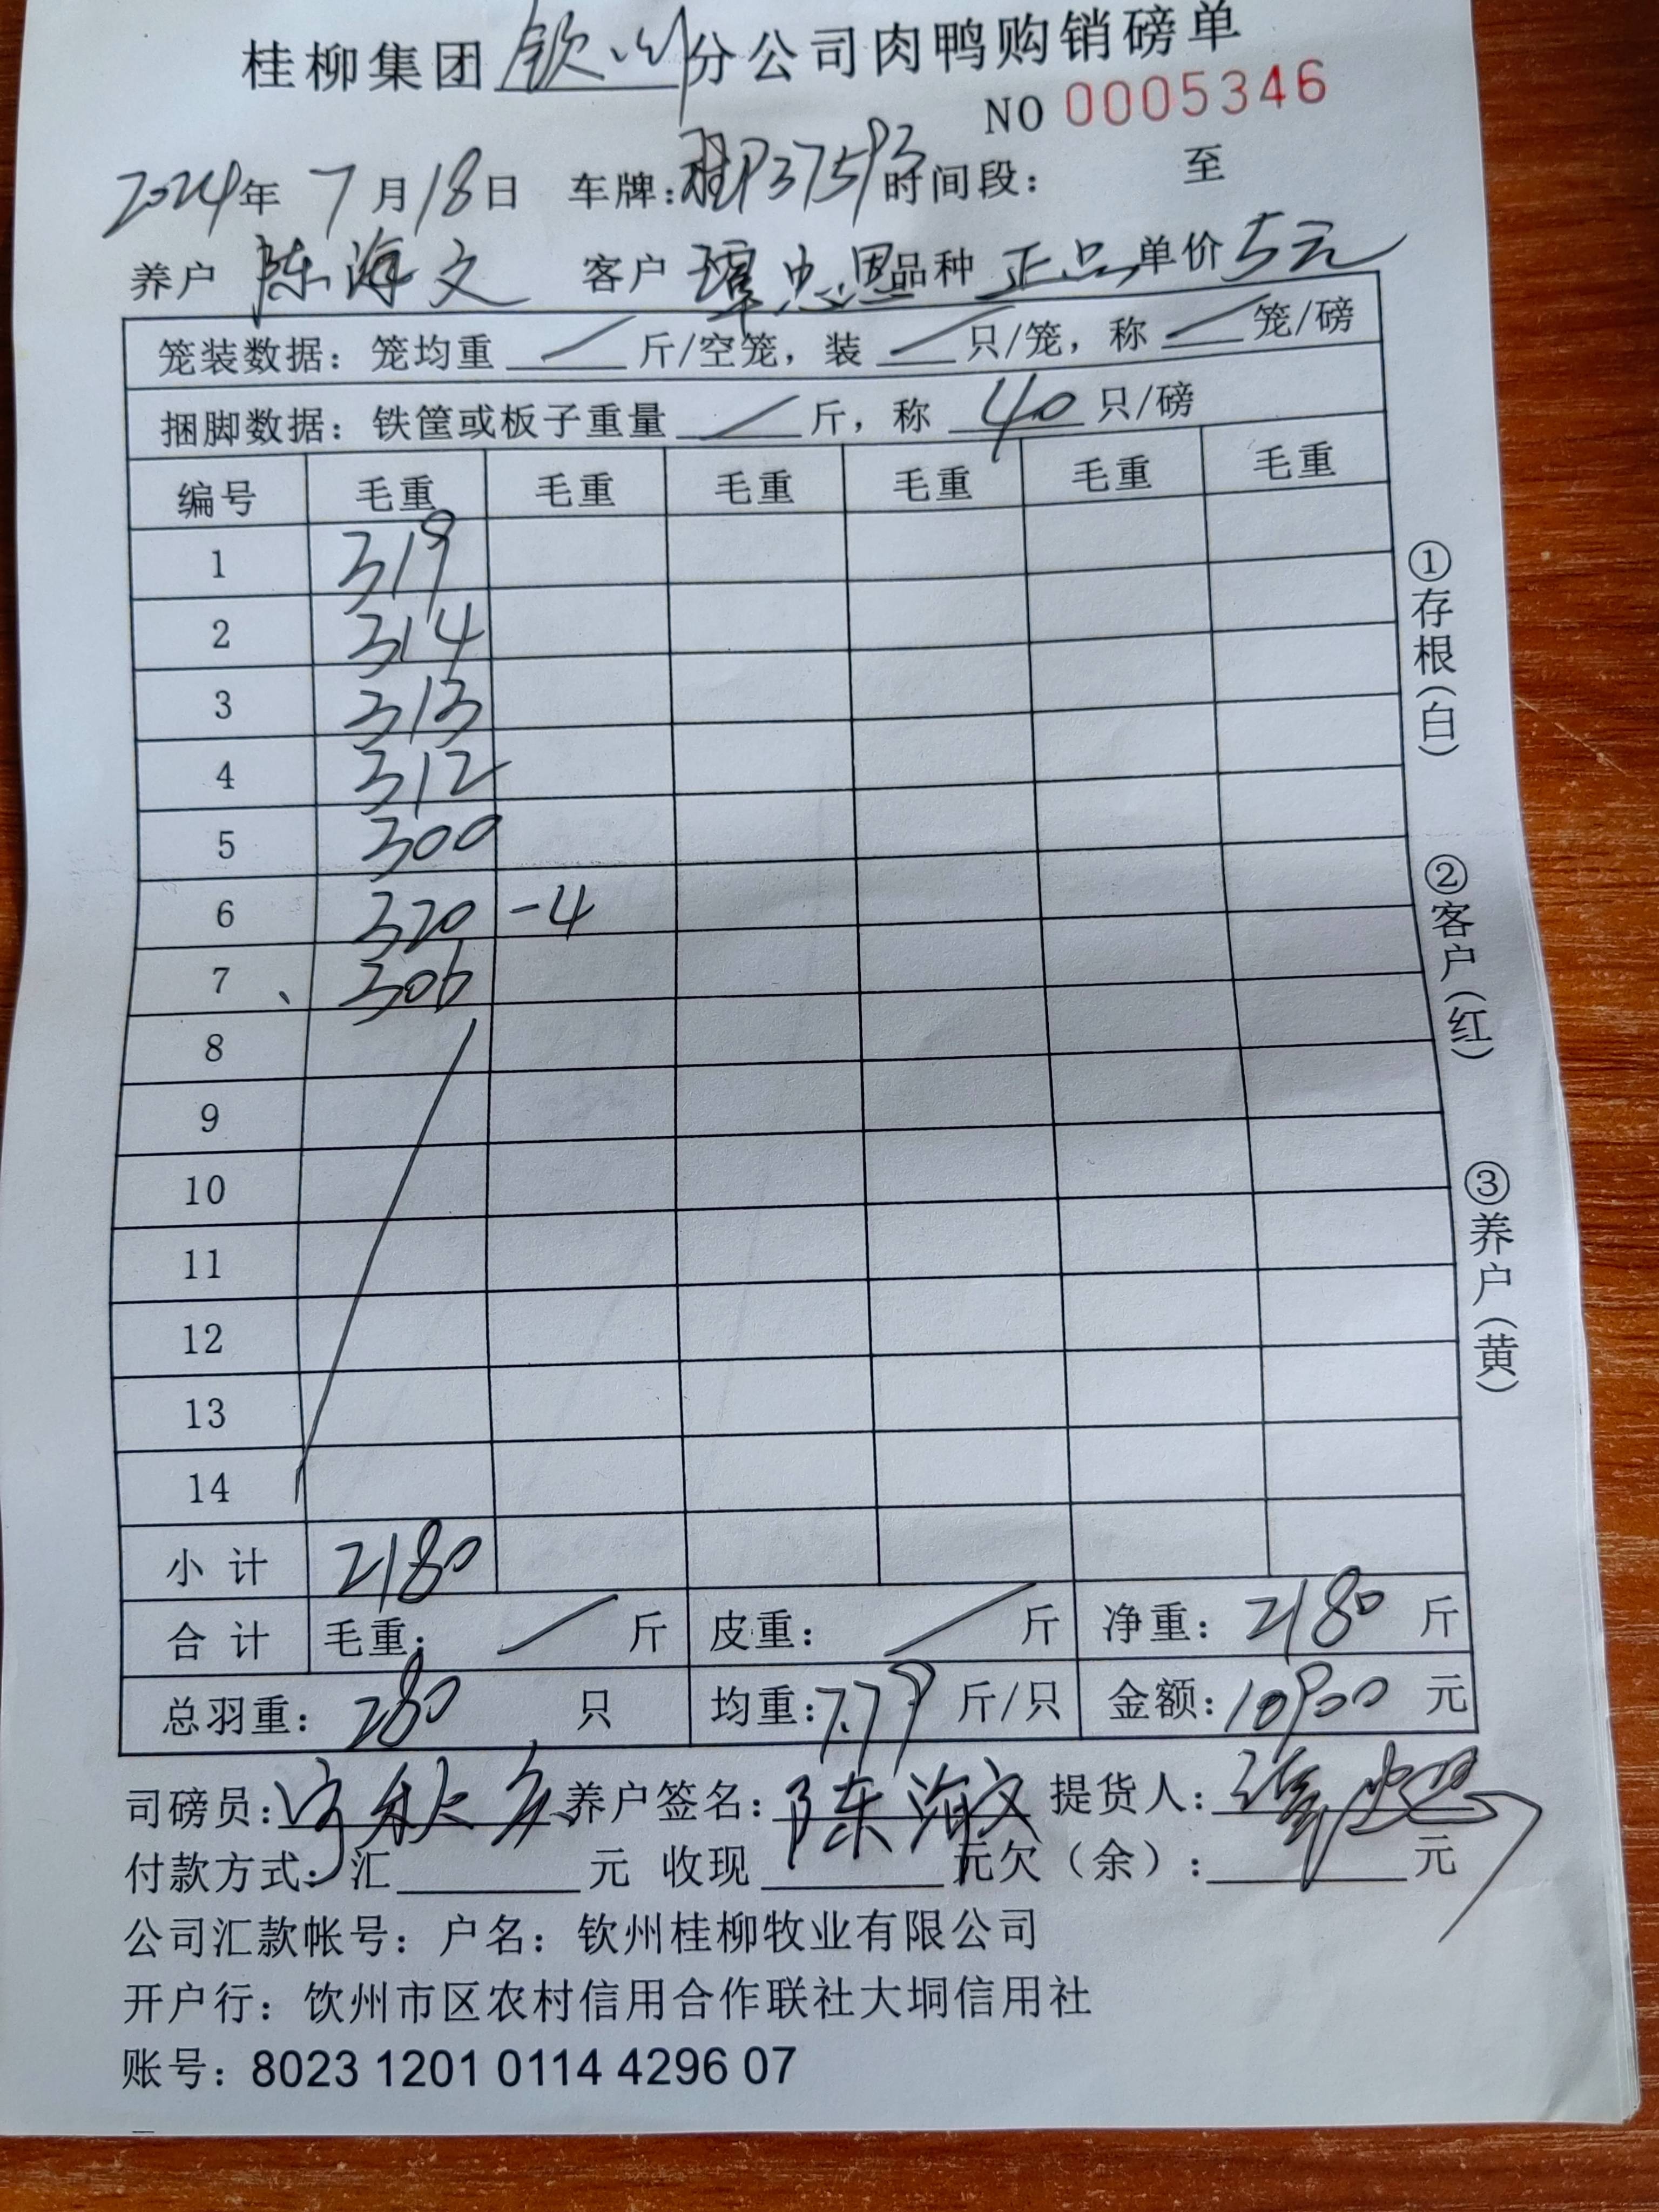 桂柳集团钦州分公司肉鸭购销磅单
NO 0005346
2024年 7月18日 车牌:桂P37593时间段: 至
养户 陈海文 客户 覃忠恩 品种 正品 单价 5元
笼装数据：笼均重 / 斤/空笼，装 / 只/笼，称 / 笼/磅
捆脚数据：铁筐或板子重量 / 斤，称 40 只/磅
编号 毛重 毛重 毛重 毛重 毛重 毛重
1 319
2 314
3 313
4 312
5 300
6 320 -4
7 306
8
9
10
11
12
13
14
小计 2180
合计 毛重: / 斤 皮重: / 斤 净重: 2180 斤
总羽重: 280 只 均重:7.79 斤/只 金额:10900 元
司磅员: 养户签名:陈海文 提货人:覃忠恩
付款方式：汇 元 收现 元欠（余）： 元
公司汇款帐号：户名：钦州桂柳牧业有限公司
开户行：钦州市区农村信用合作联社大垌信用社
账号：8023 1201 0114 4296 07
①存根（白）
②客户（红）
③养户（黄）